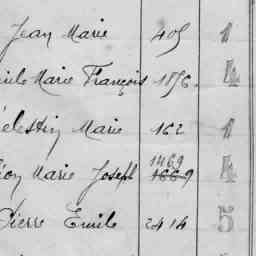 Jean Marie 405 1
Marie François 1896. 4
Célestin Marie 162 1
1469
Marie Joseph 1669 4
Pierre Emile 2414 5